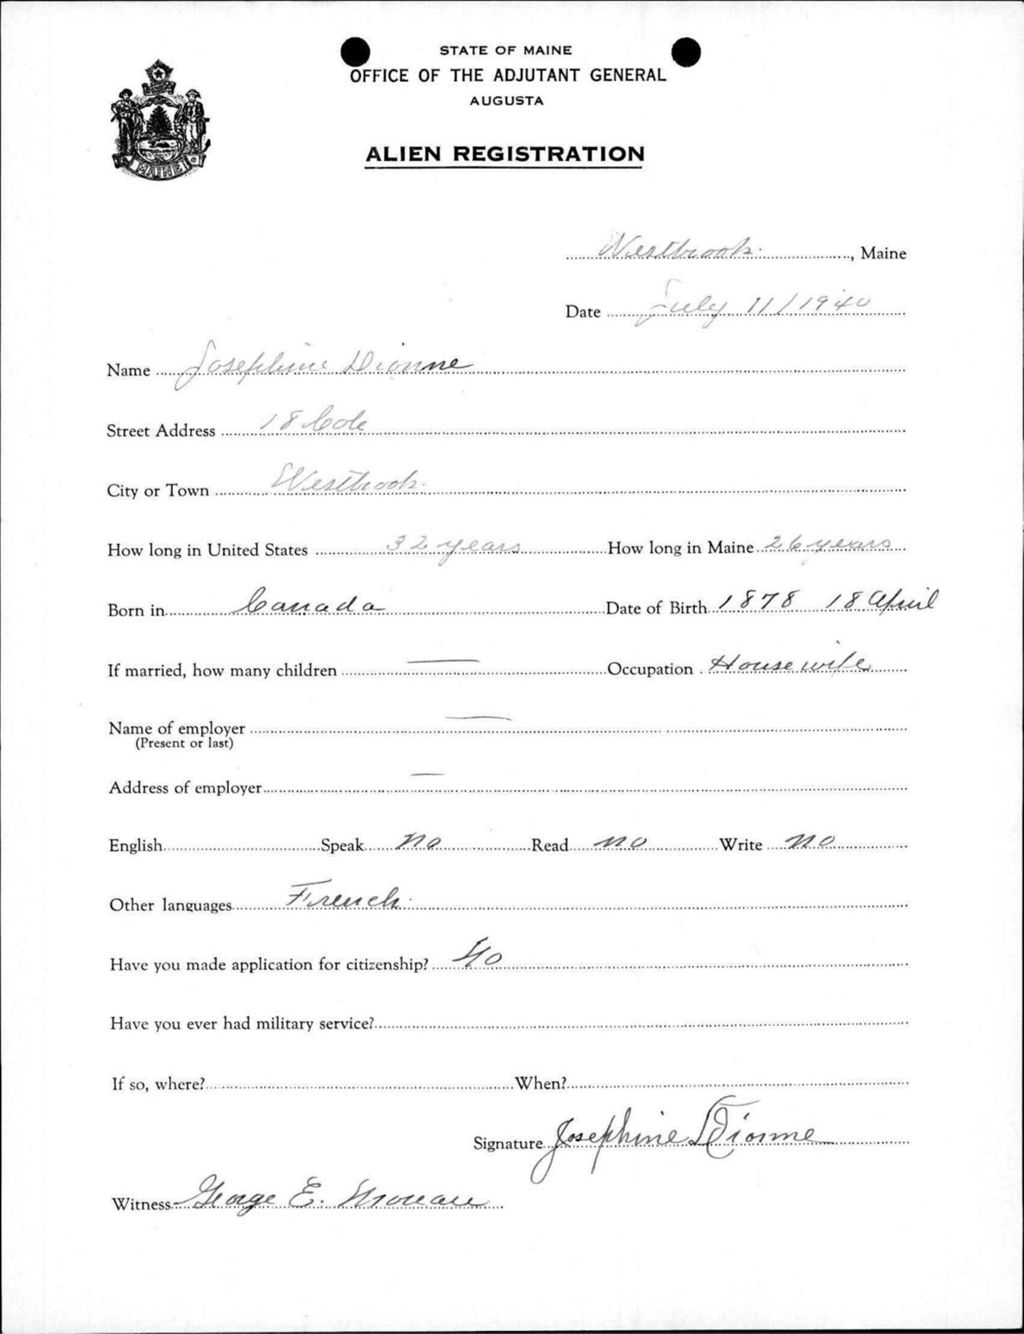 STATE OF MAINE
OFFICE OF THE ADJUTANT GENERAL
AUGUSTA
ALIEN REGISTRATION
MAINE
Westbrook, Maine
Date July 11/1940
Name Josephine Dionne
Street Address 18 Cole
City or Town Westbrook.
How long in United States 32 years How long in Maine 26 years
Born in Canada Date of Birth 1878 18 April
If married, how many children — Occupation Housewife
Name of employer —
(Present or last)
Address of employer —
English Speak no Read no Write no
Other languages French.
Have you made application for citizenship? No
Have you ever had military service?
If so, where? When?
Signature Josephine Dionne
Witness George E.